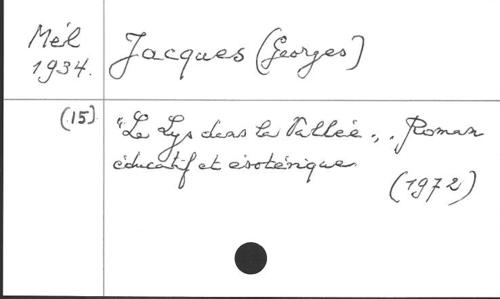 Mél
1934.
Jacques (Georges)
(15)
"Le Lys dans la Vallée". Roman
éducatif et ésotérique.
(1972)